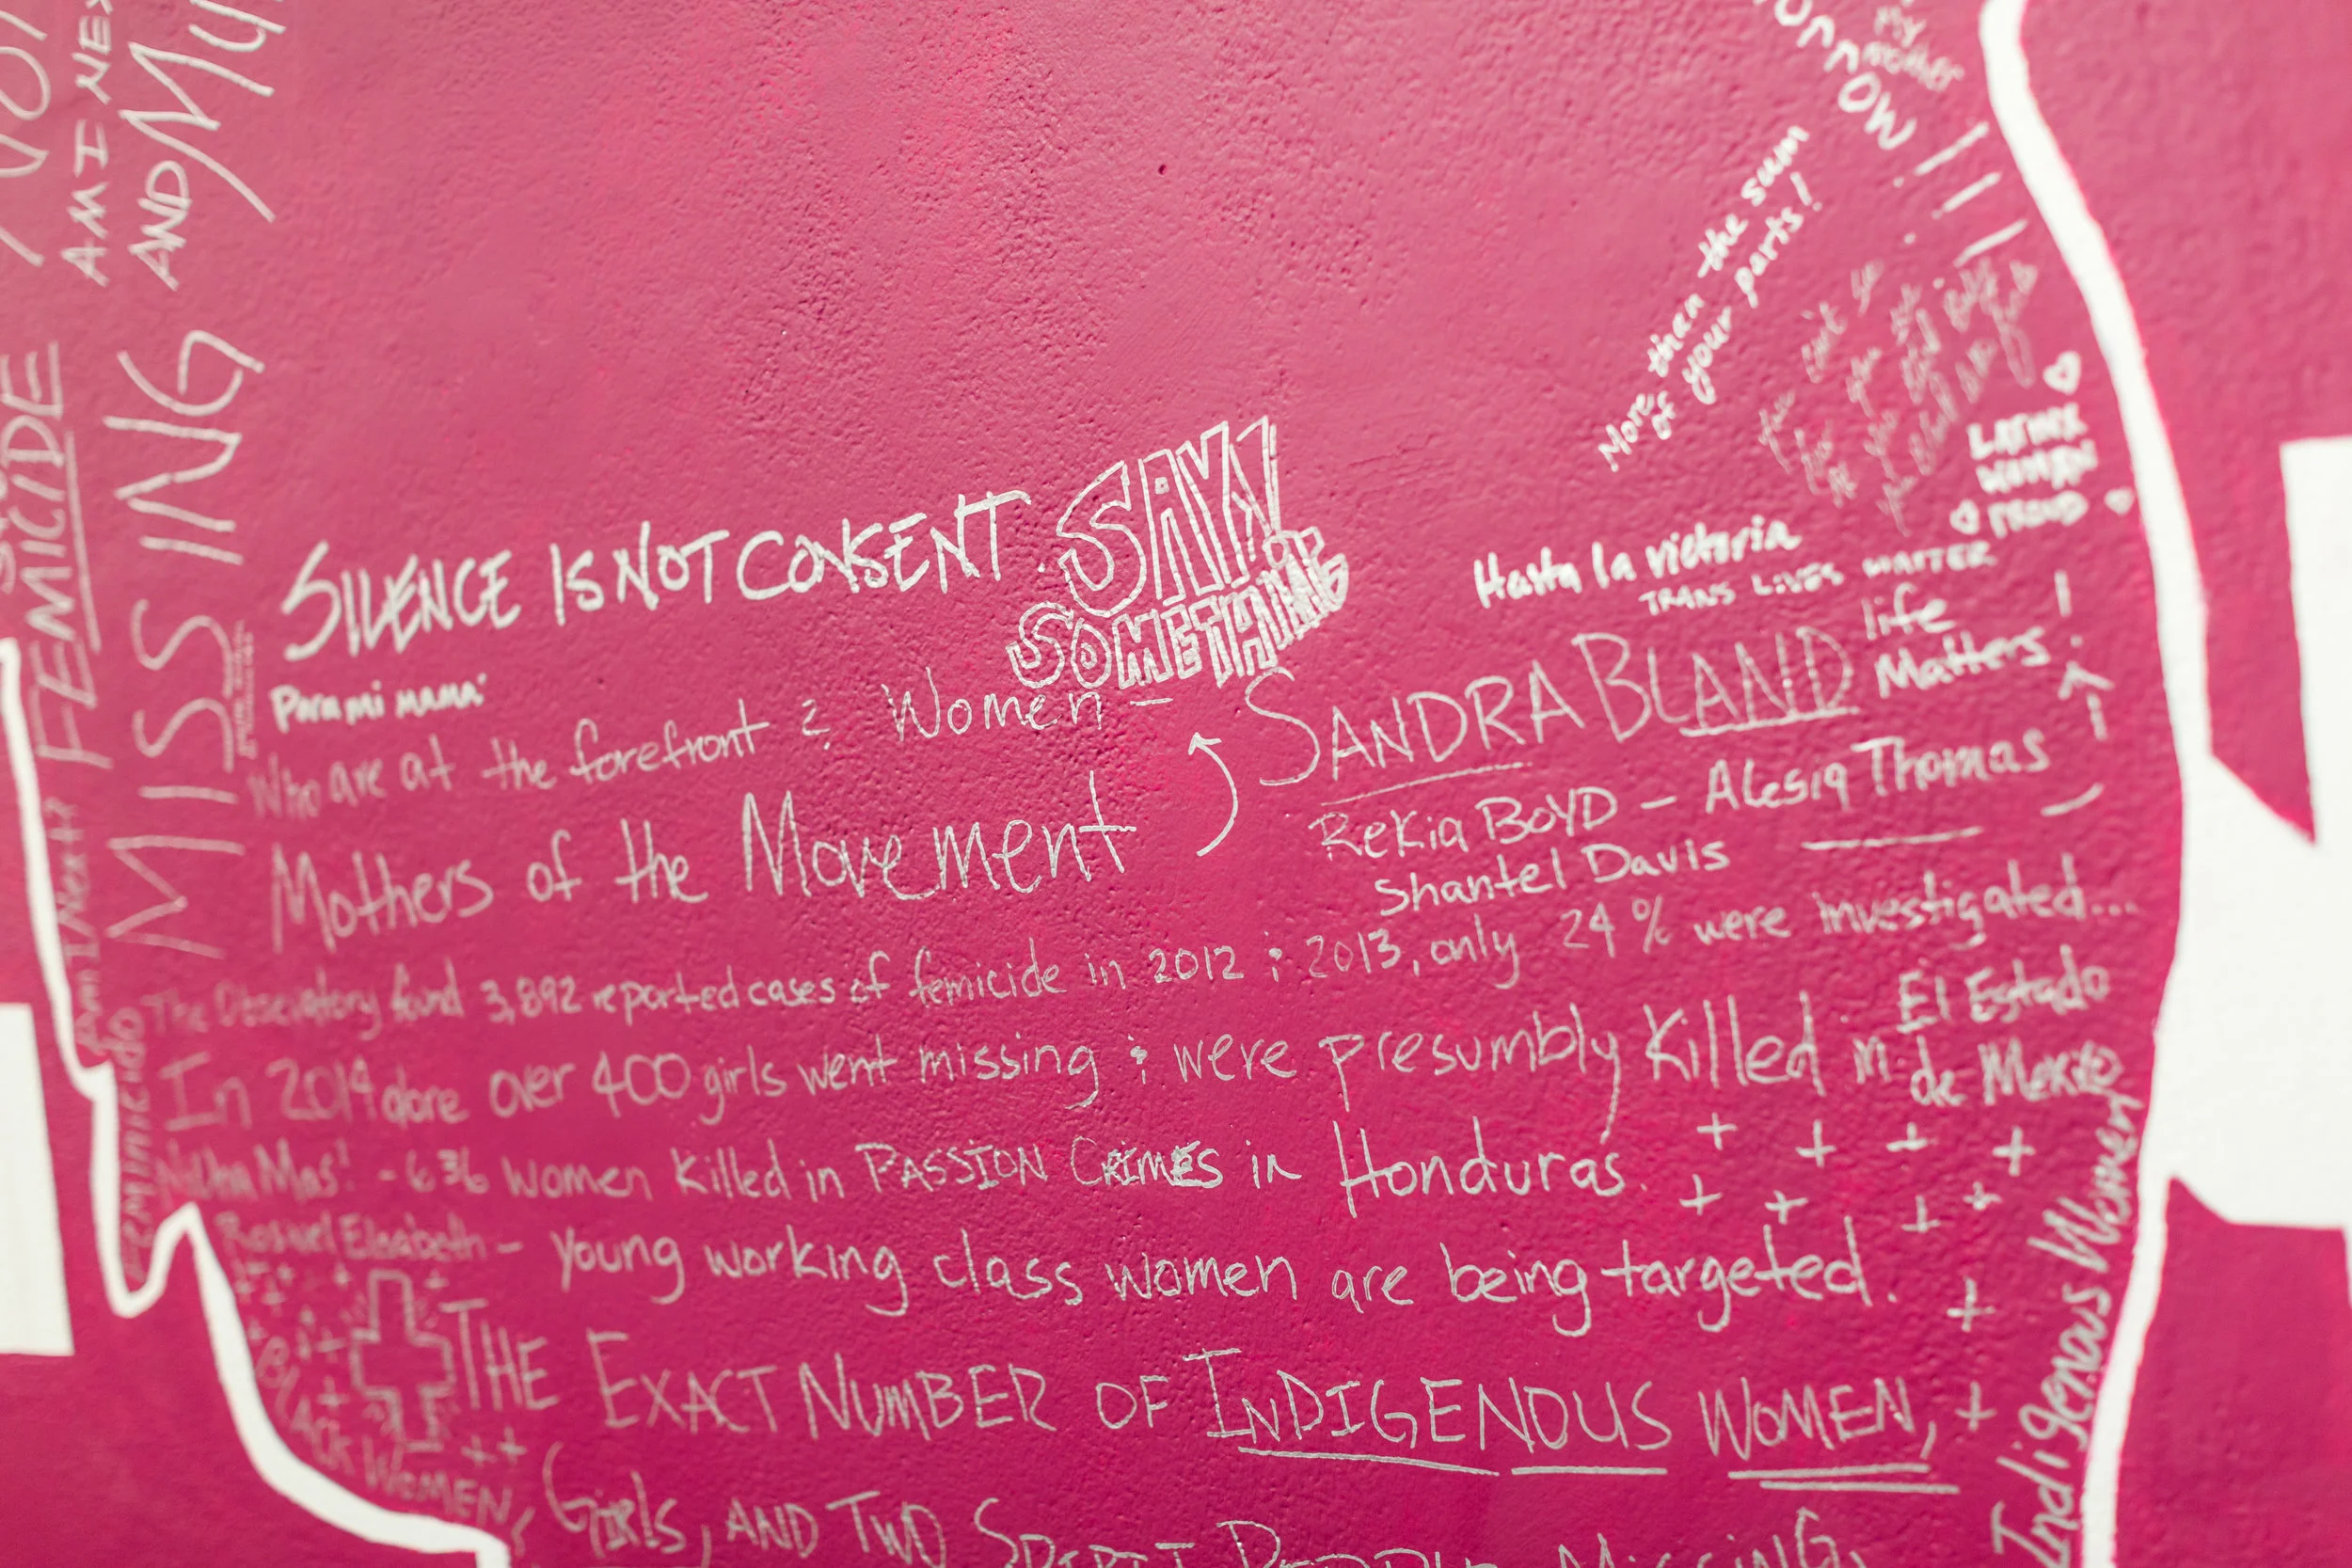 AM I NEX
AND MU
FEMICIDE
MISSING
Am I Next?
Feminicido
orrow
My
mother
More then the sum
of your parts!
LATINX
WOMEN
PROUD
SILENCE IS NOT CONSENT.
SAY!
SOMETHING
Hasta la victoria
TRANS LIVES MATTER
Para mi mamá
Who are at the forefront? Women -
SANDRA BLAND life
Matters!
Mothers of the Movement
Rekia BOYD - Alesia Thomas
Shantel Davis
The Observatory found 3,892 reported cases of femicide in 2012 & 2013, only 24% were investigated...
In 2014 alone over 400 girls went missing & were presumbly killed in El Estado
de Mexico
Ni Una Mas! - 636 women killed in PASSION CRIMES in Honduras.
- young working class women are being targeted.
THE EXACT NUMBER OF INDIGENOUS WOMEN,
Girls, AND TWO SPIRIT PEOPLE MISSING,
BLACK WOMEN,
Indigenous Women